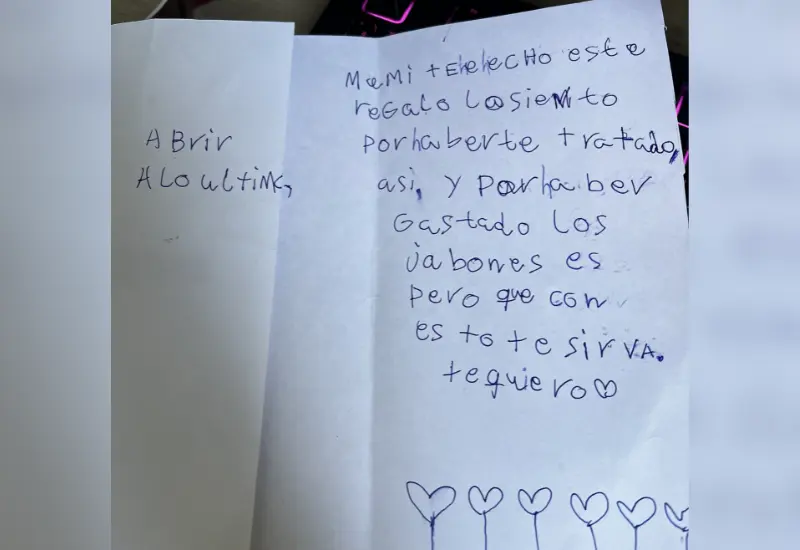 ABrir
ALO ultimo,
MaMi +EheheCHO este
regalo Losiento
porhaberte tratado,
asi, y porhaber
Gastado los
jabones es
pero que con
esto te sirva.
tequiero♡